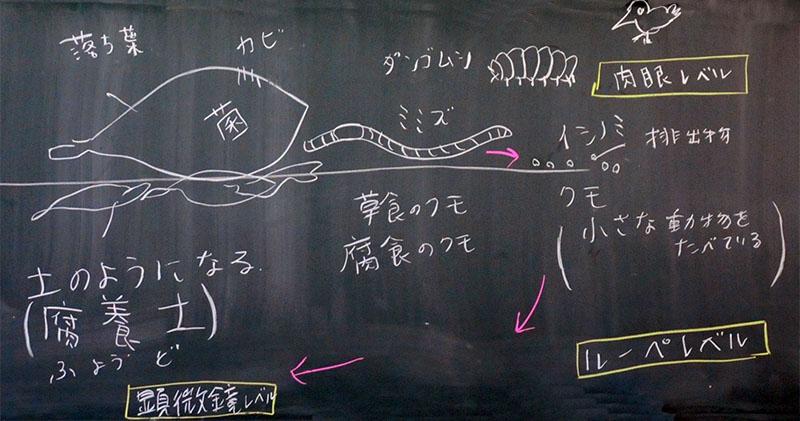 落ち葉
カビ
菌
ダンゴムシ
肉眼レベル
ミミズ
イシノミ
排出物
クモ
(小さな動物を
たべている)
草食のクモ
腐食のクモ
土のようになる.
(腐養土)
ふようど
ルーペレベル
顕微鏡レベル